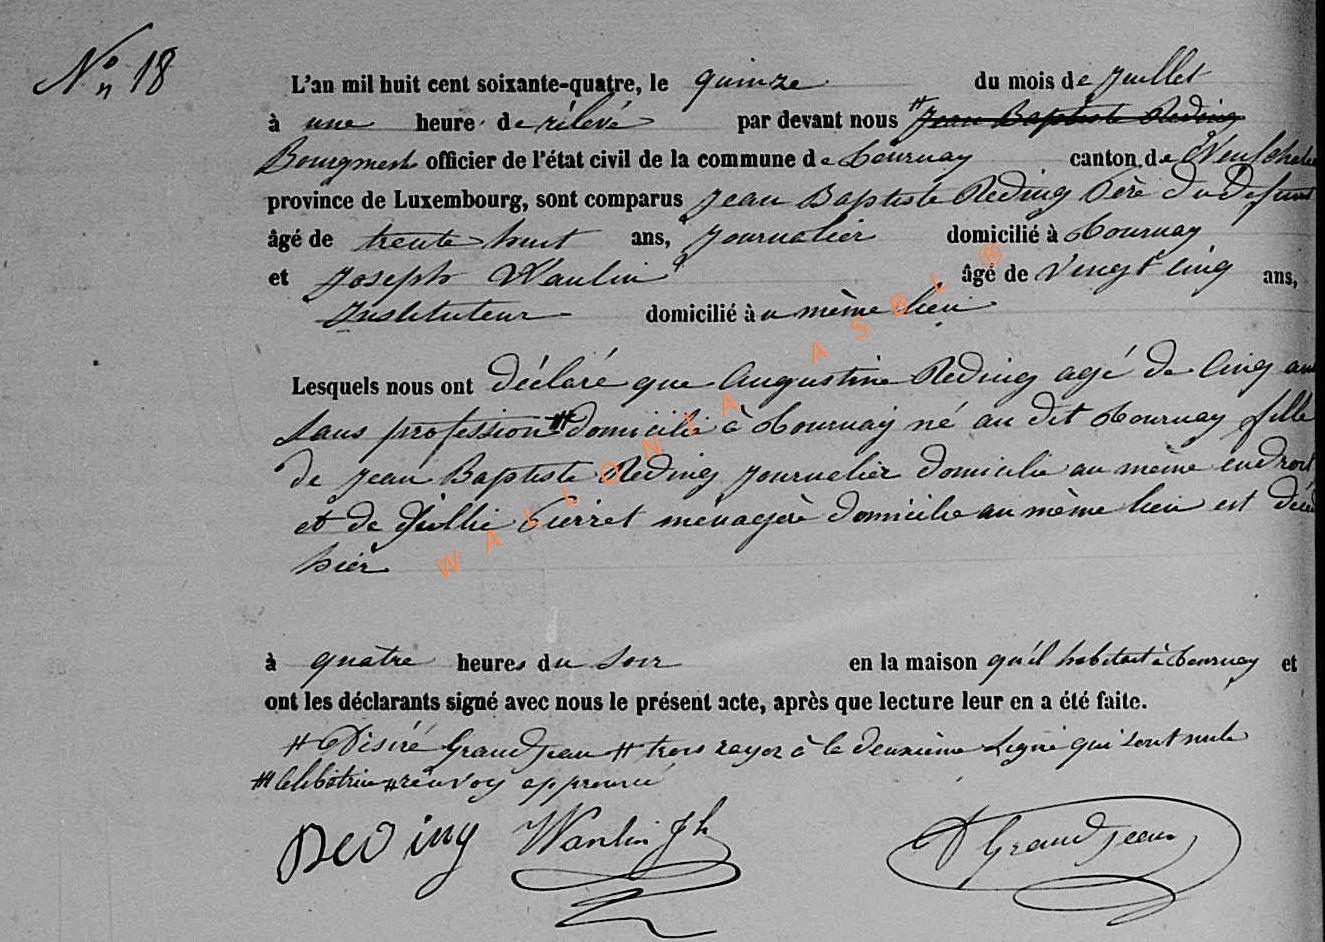 N° 18
L'an mil huit cent soixante-quatre, le quinze du mois de Juillet
à une heure de rélevé par devant nous # Jean Baptiste Reding
Bourgmest officier de l'état civil de la commune de Tournay canton de Neufchate
province de Luxembourg, sont comparus Jean Baptiste Reding Père du Defunt
âgé de trente huit ans, Journalier domicilié à Tournay
et Joseph Wanlin âgé de Vingt cinq ans,
Instituteur domicilié au même lieu
Lesquels nous ont déclaré que Augustine Reding agé de Cinq ans
Sans profession # domicilié à Tournay né au dit Tournay fille
de Jean Baptiste Reding Journalier domicilié au même endroit
et de Pierret ménagère domicilié au même lieu est
hier
à quatre heures du soir en la maison qu'il habitait à Tournay et
ont les déclarants signé avec nous le présent acte, après que lecture leur en a été faite.
# Désiré Grandjean # trois rayer à la deuxième Ligne qui sont nuls
# Celibatrice # renvoy approuvé
Reding Wanlin Jh D Grandjean
WALLONIA ASBL ®